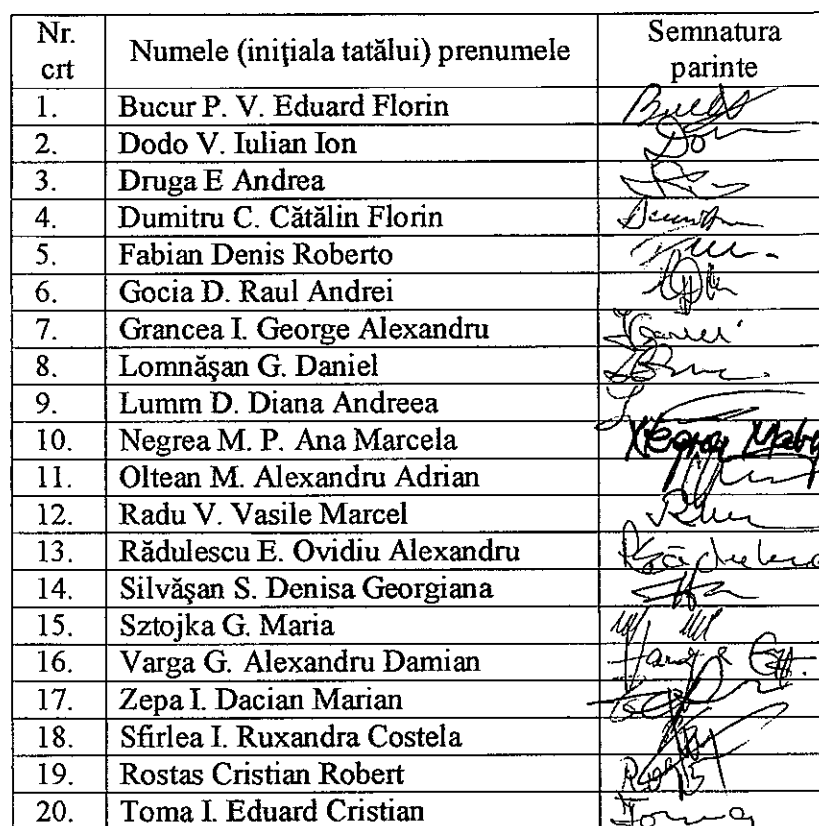 Nr. crt Numele (iniţiala tatălui) prenumele Semnatura parinte
1. Bucur P. V. Eduard Florin
2. Dodo V. Iulian Ion
3. Druga E Andrea
4. Dumitru C. Cătălin Florin
5. Fabian Denis Roberto
6. Gocia D. Raul Andrei
7. Grancea I. George Alexandru
8. Lomnăşan G. Daniel
9. Lumm D. Diana Andreea
10. Negrea M. P. Ana Marcela
11. Oltean M. Alexandru Adrian
12. Radu V. Vasile Marcel
13. Rădulescu E. Ovidiu Alexandru
14. Silvăşan S. Denisa Georgiana
15. Sztojka G. Maria
16. Varga G. Alexandru Damian
17. Zepa I. Dacian Marian
18. Sfirlea I. Ruxandra Costela
19. Rostas Cristian Robert
20. Toma I. Eduard Cristian Toma